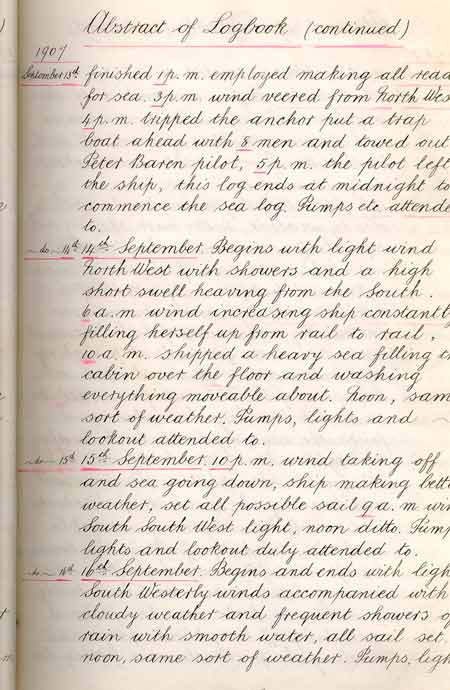 Abstract of Logbook (continued)
1907
September 13th finished 1 p. m. employed making all read
for sea. 3 p. m. wind veered from North Wes
4 p. m. tripped the anchor put a trap
boat ahead with 8 men and towed out
Peter Baren pilot, 5 p. m. the pilot left
the ship, this log ends at midnight to
commence the sea log. Pumps etc. attende
to.
-do- 14th 14th September. Begins with light wind
North West with showers and a high
short swell heaving from the South.
6 a. m wind increasing ship constantl
filling herself up from rail to rail,
10 a. m. shipped a heavy sea filling th
cabin over the floor and washing
everything moveable about. Noon, sam
sort of weather. Pumps, lights and
lookout attended to.
-do- 15th 15th September. 10 p. m. wind taking off
and sea going down, ship making bett
weather, set all possible sail 9 a. m. win
South South West light, noon ditto. Pum
lights and lookout duly attended to.
-do- 16th 16th September. Begins and ends with ligh
South Westerly winds accompanied with
cloudy weather and frequent showers o
rain with smooth water, all sail set.
noon, same sort of weather. Pumps, ligh